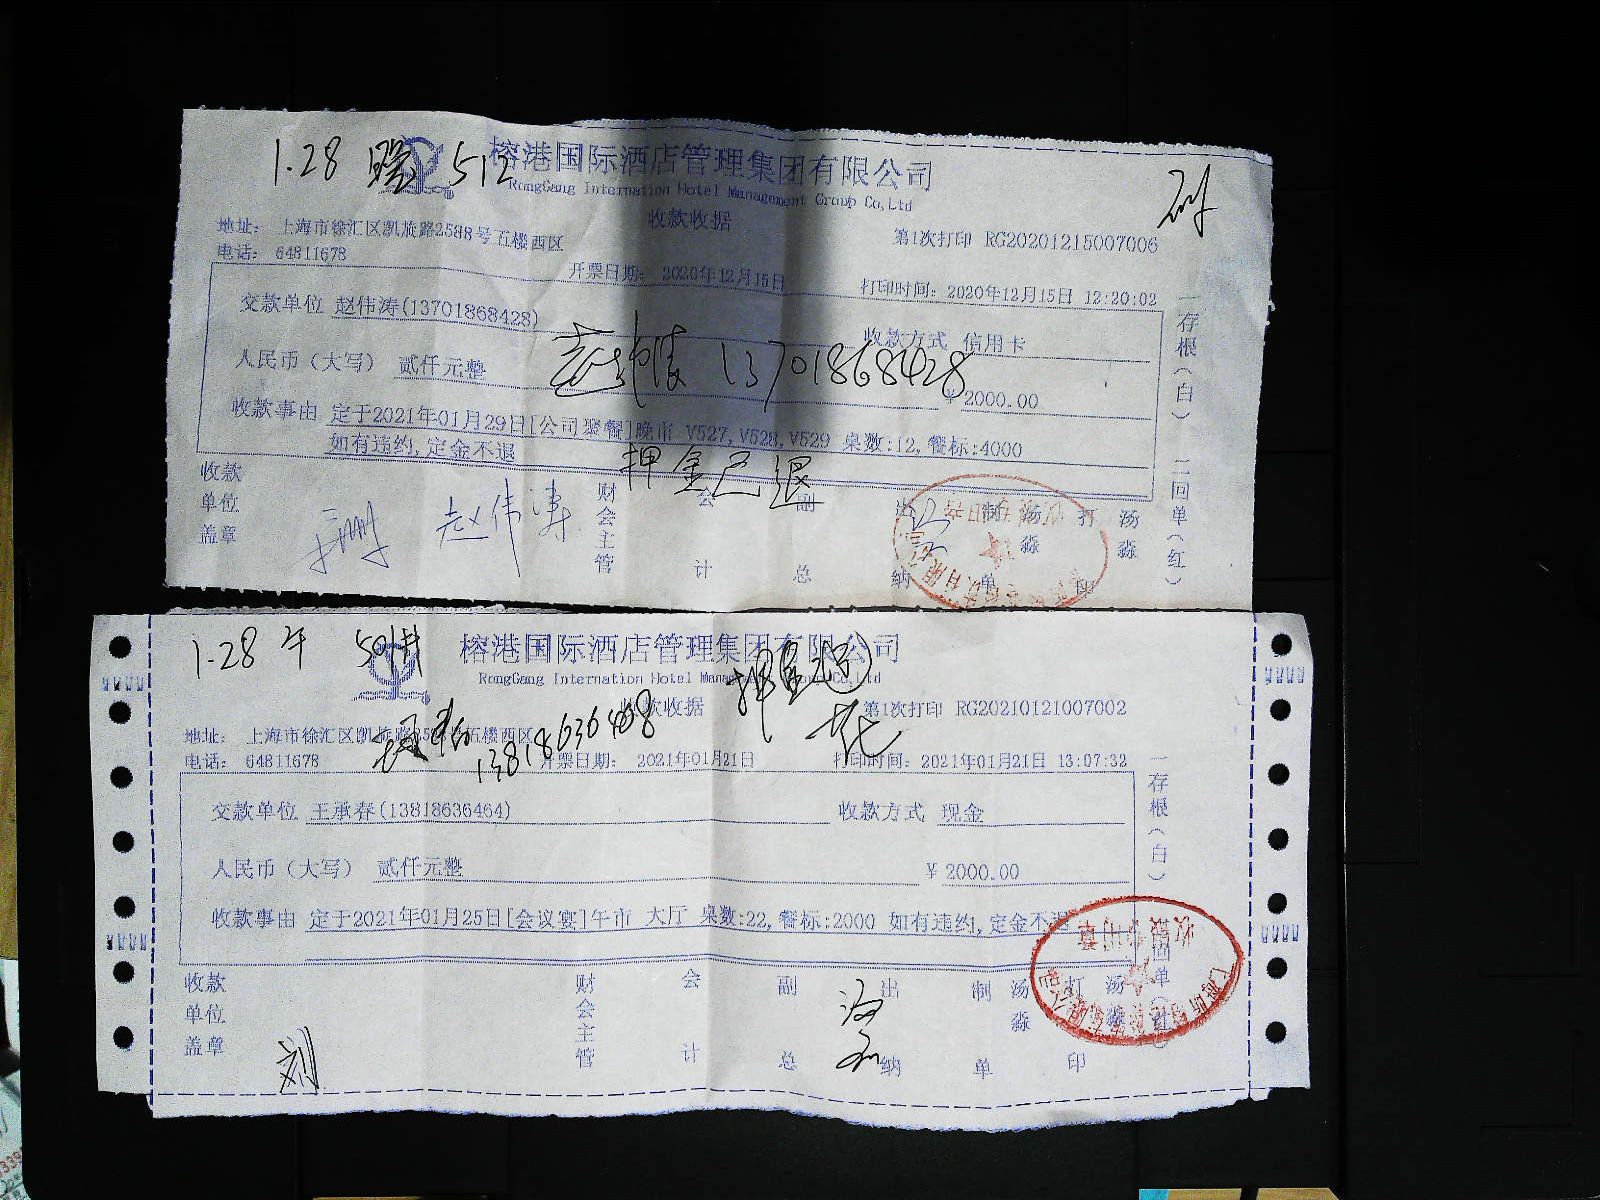 1.28 晚 512
榕港国际酒店管理集团有限公司
RongGang Internation Hotel Management Group Co,Ltd
收款收据
地址： 上海市徐汇区凯旋路2588号五楼西区
第1次打印 RG20201215007006
电话： 64811678
开票日期： 2020年12月15日
打印时间：2020年12月15日 12:20:02
交款单位 赵伟涛(13701868428)
收款方式 信用卡
人民币（大写） 贰仟元整
13701868428
￥2000.00
收款事由 定于2021年01月29日[公司聚餐]晚市 V527,V528,V529 桌数:12,餐标:4000
如有违约,定金不退
押金已退
收款单位盖章
赵伟涛
财会主管
会计
副总
出纳
制单
汤淼
打印
汤淼
一存根（白） 二回单（红）
1.28 午
榕港国际酒店管理集团有限公司
RongGang Internation Hotel Management Group Co,Ltd
押金退
收款收据
第1次打印 RG20210121007002
地址： 上海市徐汇区凯旋路2588号五楼西区
电话： 64811678
开票日期： 2021年01月21日
打印时间：2021年01月21日 13:07:32
交款单位 王承春(13818636464)
收款方式 现金
人民币（大写） 贰仟元整
￥2000.00
收款事由 定于2021年01月25日[会议宴]午市 大厅 桌数:22,餐标:2000 如有违约,定金不退
收款单位盖章
刘
财会主管
会计
副总
出纳
制单
汤淼
打印
汤淼
一存根（白） 二回单（红）
收款专用章